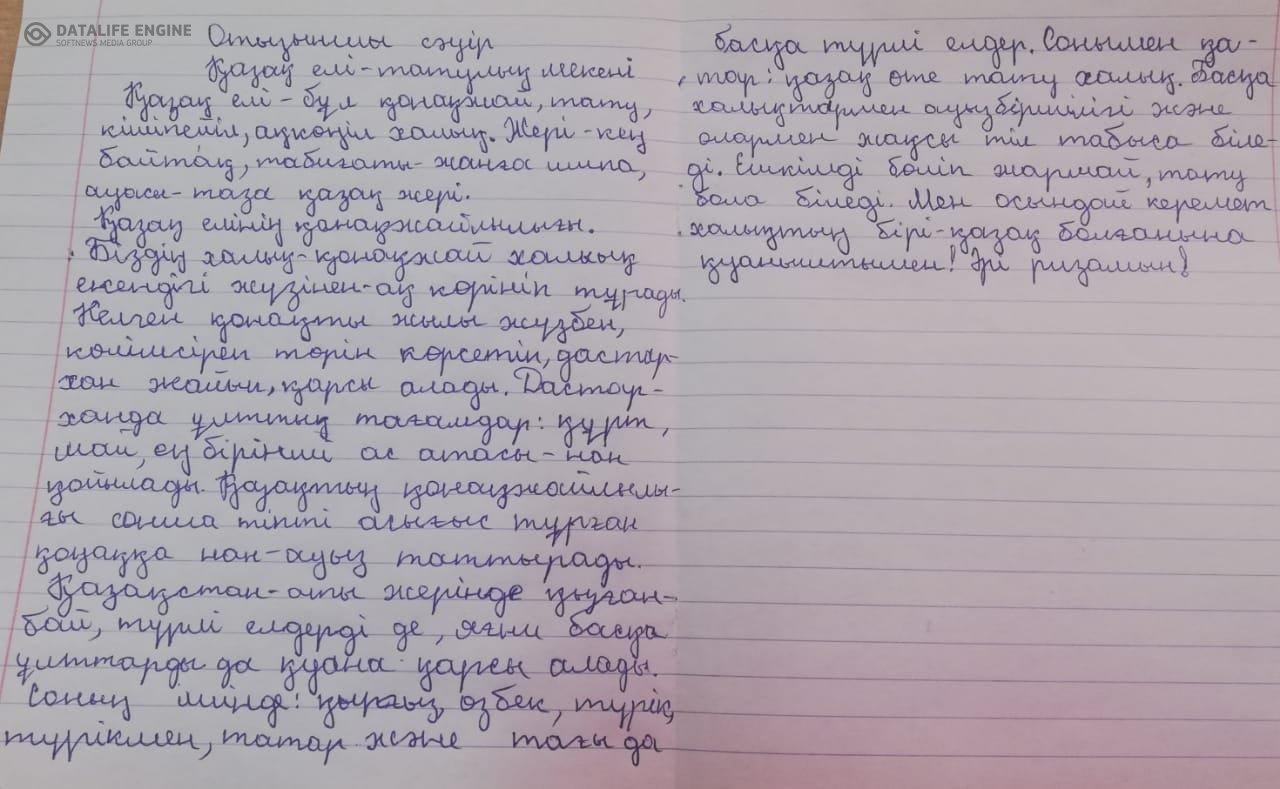 DATALIFE ENGINE
SOFTNEWS MEDIA GROUP
Отызыншы сәуір
Қазақ елі-татулық мекені
Қазақ елі - бұл қонақжай, тату,
кішіпейіл, ақкөңіл халық. Жері - кең
байтақ, табиғаты- жанға шипа,
ауасы- таза қазақ жері.
Қазақ елінің қонақжайлылығы.
Біздің халық-қонақжай халық
екендігі жүзінен-ақ көрініп тұрады.
Келген қонақты жылы жүзбен,
күлімсіреп төрін көрсетіп, дастар-
хан жайып, қарсы алады. Дастар-
ханда ұлттық тағамдар: құрт,
май, ең бірінші ас атасы - нан
қойылады. Қазақтың қонақжайлылы-
ғы сонша тіпті асығыс тұрған
қонаққа нан-ауыз таттырады.
Қазақстан- аты жерінде
бай, түрлі елдерді де, яғни басқа
ұлттарды да қуана қарсы алады.
Соның ішінде: қырғыз, өзбек, түрік,
түрікмен, татар және тағы да
басқа түрлі елдер. Сонымен қа-
тар: қазақ өте тату халық. Басқа
халықтармен ауызбіршілігі және
олармен жақсы тіл табыса біле-
ді. Ешкімді бөліп жармай, тату
бола біледі. Мен осындай керемет
халықтың бірі-қазақ болғаныма
қуаныштымын! Әрі ризамын!